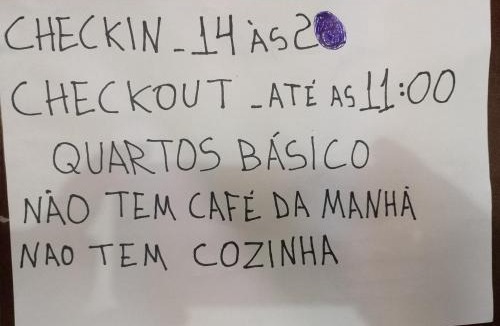 CHECKIN - 14 ÀS
CHECKOUT - ATÉ AS 11:00
QUARTOS BÁSICO
NÃO TEM CAFÉ DA MANHÃ
NAO TEM COZINHA